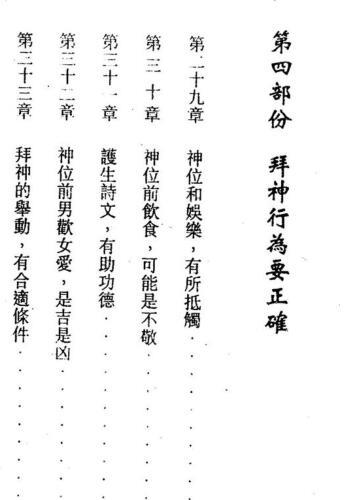 第四部份 拜神行為要正確
第二十九章 神位和娛樂，有所抵觸
第三十章 神位前飲食，可能是不敬
第三十一章 護生詩文，有助功德
第三十二章 神位前男歡女愛，是吉是凶
第三十三章 拜神的舉動，有合適條件